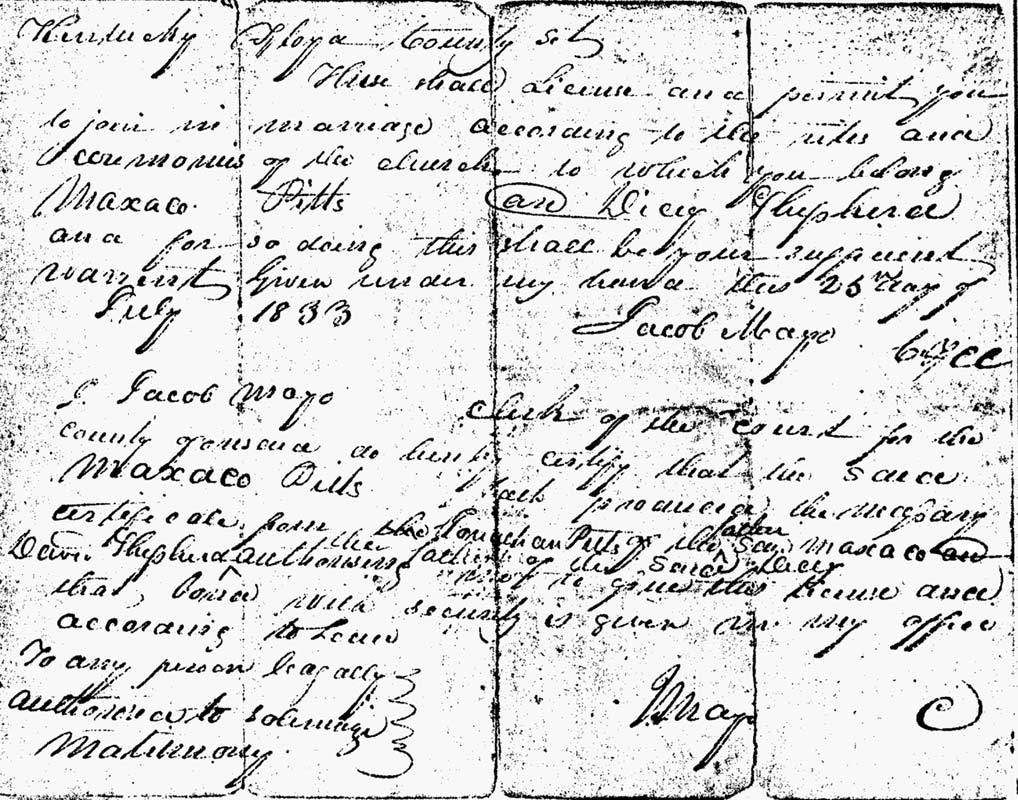 Kentucky Floyd County sct
These shall License and permit you
to join in marriage according to the rites and
ceremonies of the church to which you belong
Maxaco Pitts and Dicy Shepherd
and for so doing this shall be your sufficient
warrent Given under my hand this 25th day of
July 1833
Jacob Mayo
CC
I Jacob Mayo Clerk of the court for the
county aforesaid do hereby certify that the said
Maxaco Pitts hath produced the necessary
certificate from the Jonathan Pitts father of the Say Maxaco and
Shepherd authorising the father of the said Dicy
me to give this License and
that bond with security is given in my office
according to Law
To any person leagally
authorised to solemnize
Matrimony.
Mayo C